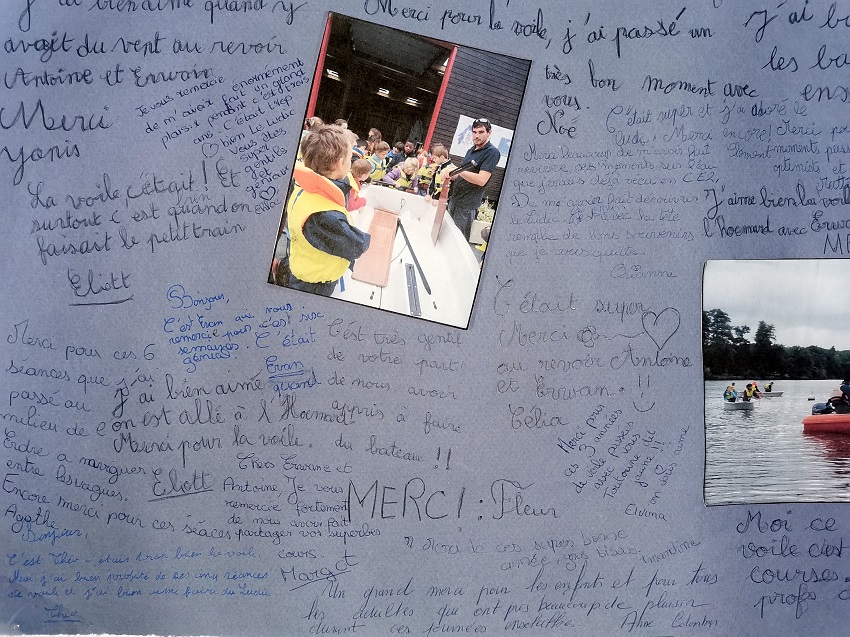 j'ai bien aimé quand y
avait du vent au revoir
Antoine et Erwan
Merci
Yonis
Je vous remercie
de m'avoir fait énormément
plaisir pendant un grand
c'était trois
ans. C'était trop
bien le Ludic
vous êtes
super
gentils
et
géniaux
La voile c'était bien! Et
surtout c'est quand on
faisait le petit train
Eliott
Merci pour la voile, j'ai passé un
très bon moment avec
vous.
Noé
J'ai
les
C'était super et j'ai adoré le
Ludic. Merci
Merci beaucoup de m'avoir fait
moments sur l'eau
que j'avais déjà vécu en CE2,
De me avoir fait découvrir
le Ludic
remplie de bons souvenirs
que je vous quitte.
Merci
moments
optimiste et
J'aime bien la voile
l'homard avec Erwan
Bonjour,
C'est Evan que vous
remercie pour c'est six
semaines. C'était
génial.
Evan
Merci pour ces 6
séances que j'ai
passé au
milieu de
Erdre a naviguer
entre les vagues.
Encore merci pour ces séaces
Agathe
j'ai bien aimé quand
on est allé à l'Homard
Merci pour la voile.
Eliott
C'est très gentil
de votre part
de nous avoir
appris à faire
du bateau!!
C'était super
Merci
au revoir Antoine
et Erwan.!!
Célia
Merci pour
ces 3 années
de voile passées
avec vous
Toutoune j'ai
aimé!!
on vous aime
Chers Erwane et
Antoine, Je vous
remercie fortement
de nous avoir fait
partager vos superbes
cours.
Margot
MERCI: Fleur
Merci de ces super bonne
année, gros bisous.
Bonjour,
C'est Théo
Moi j'ai bien profité de ces cinq séances
de voile et j'ai bien aimé faire du Ludic
Théo
Un grand merci pour les enfants et pour tous
les adultes qui ont pris beaucoup de plaisir
durant ces journées
Anne
Moi ce
voile c'est
courses.
profs